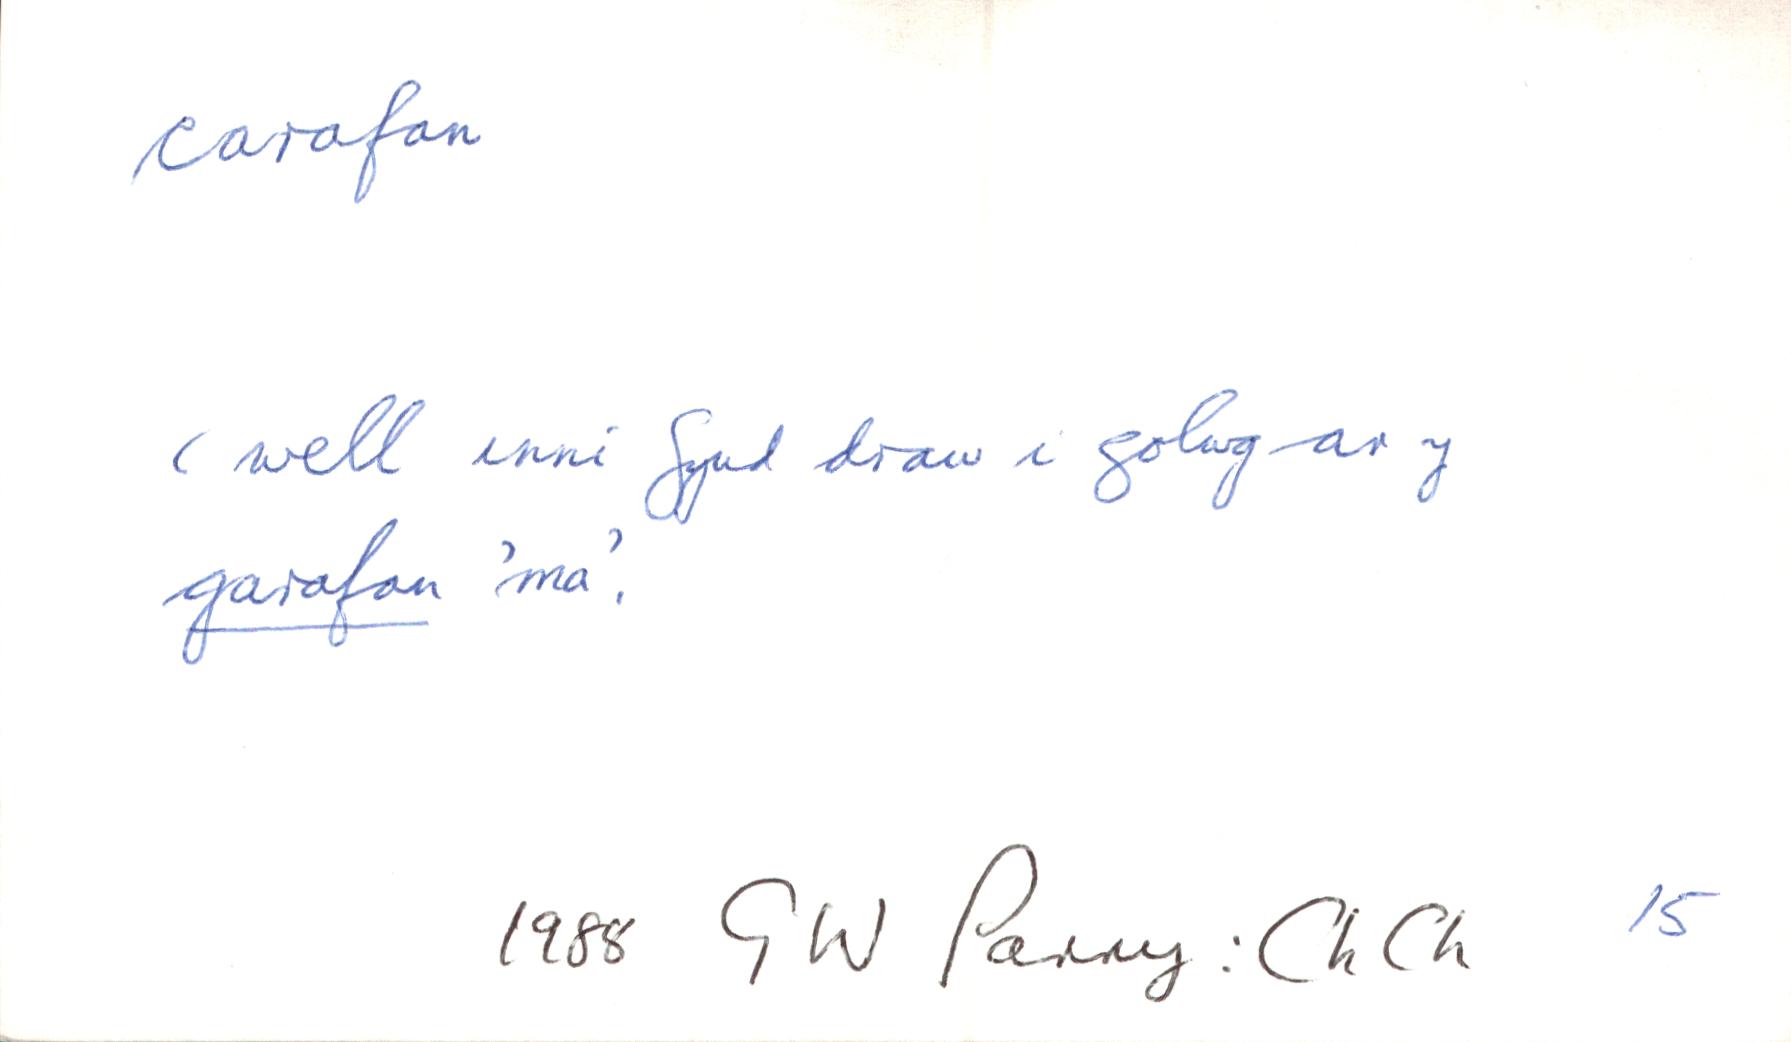 carafan
‘ well inni fynd draw i golwg ar y
garafan 'ma’.
1988 GW Parry: ChCh 15